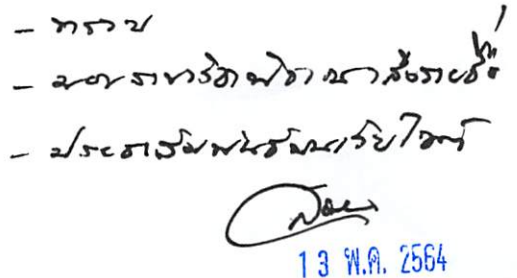 - ทราบ
- มอบรายวิชาพิจารณาส่งรายชื่อ
- ประชาสัมพันธ์บนเว็บไซต์
13 พ.ค. 2564